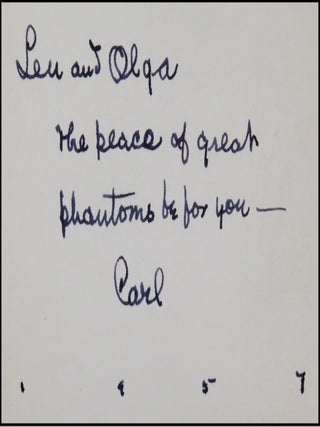 Len and Olga
The peace of great
phantoms be for you —
Carl
1 9 5 7